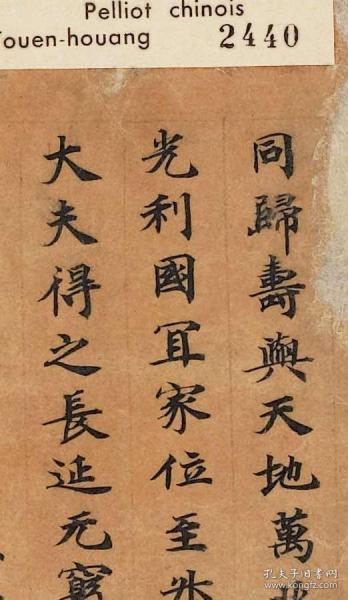 Pelliot chinois
Touen-houang 2440
同歸壽與天地萬
光利國冝家位至
大夫得之長延无窮
孔夫子旧书网